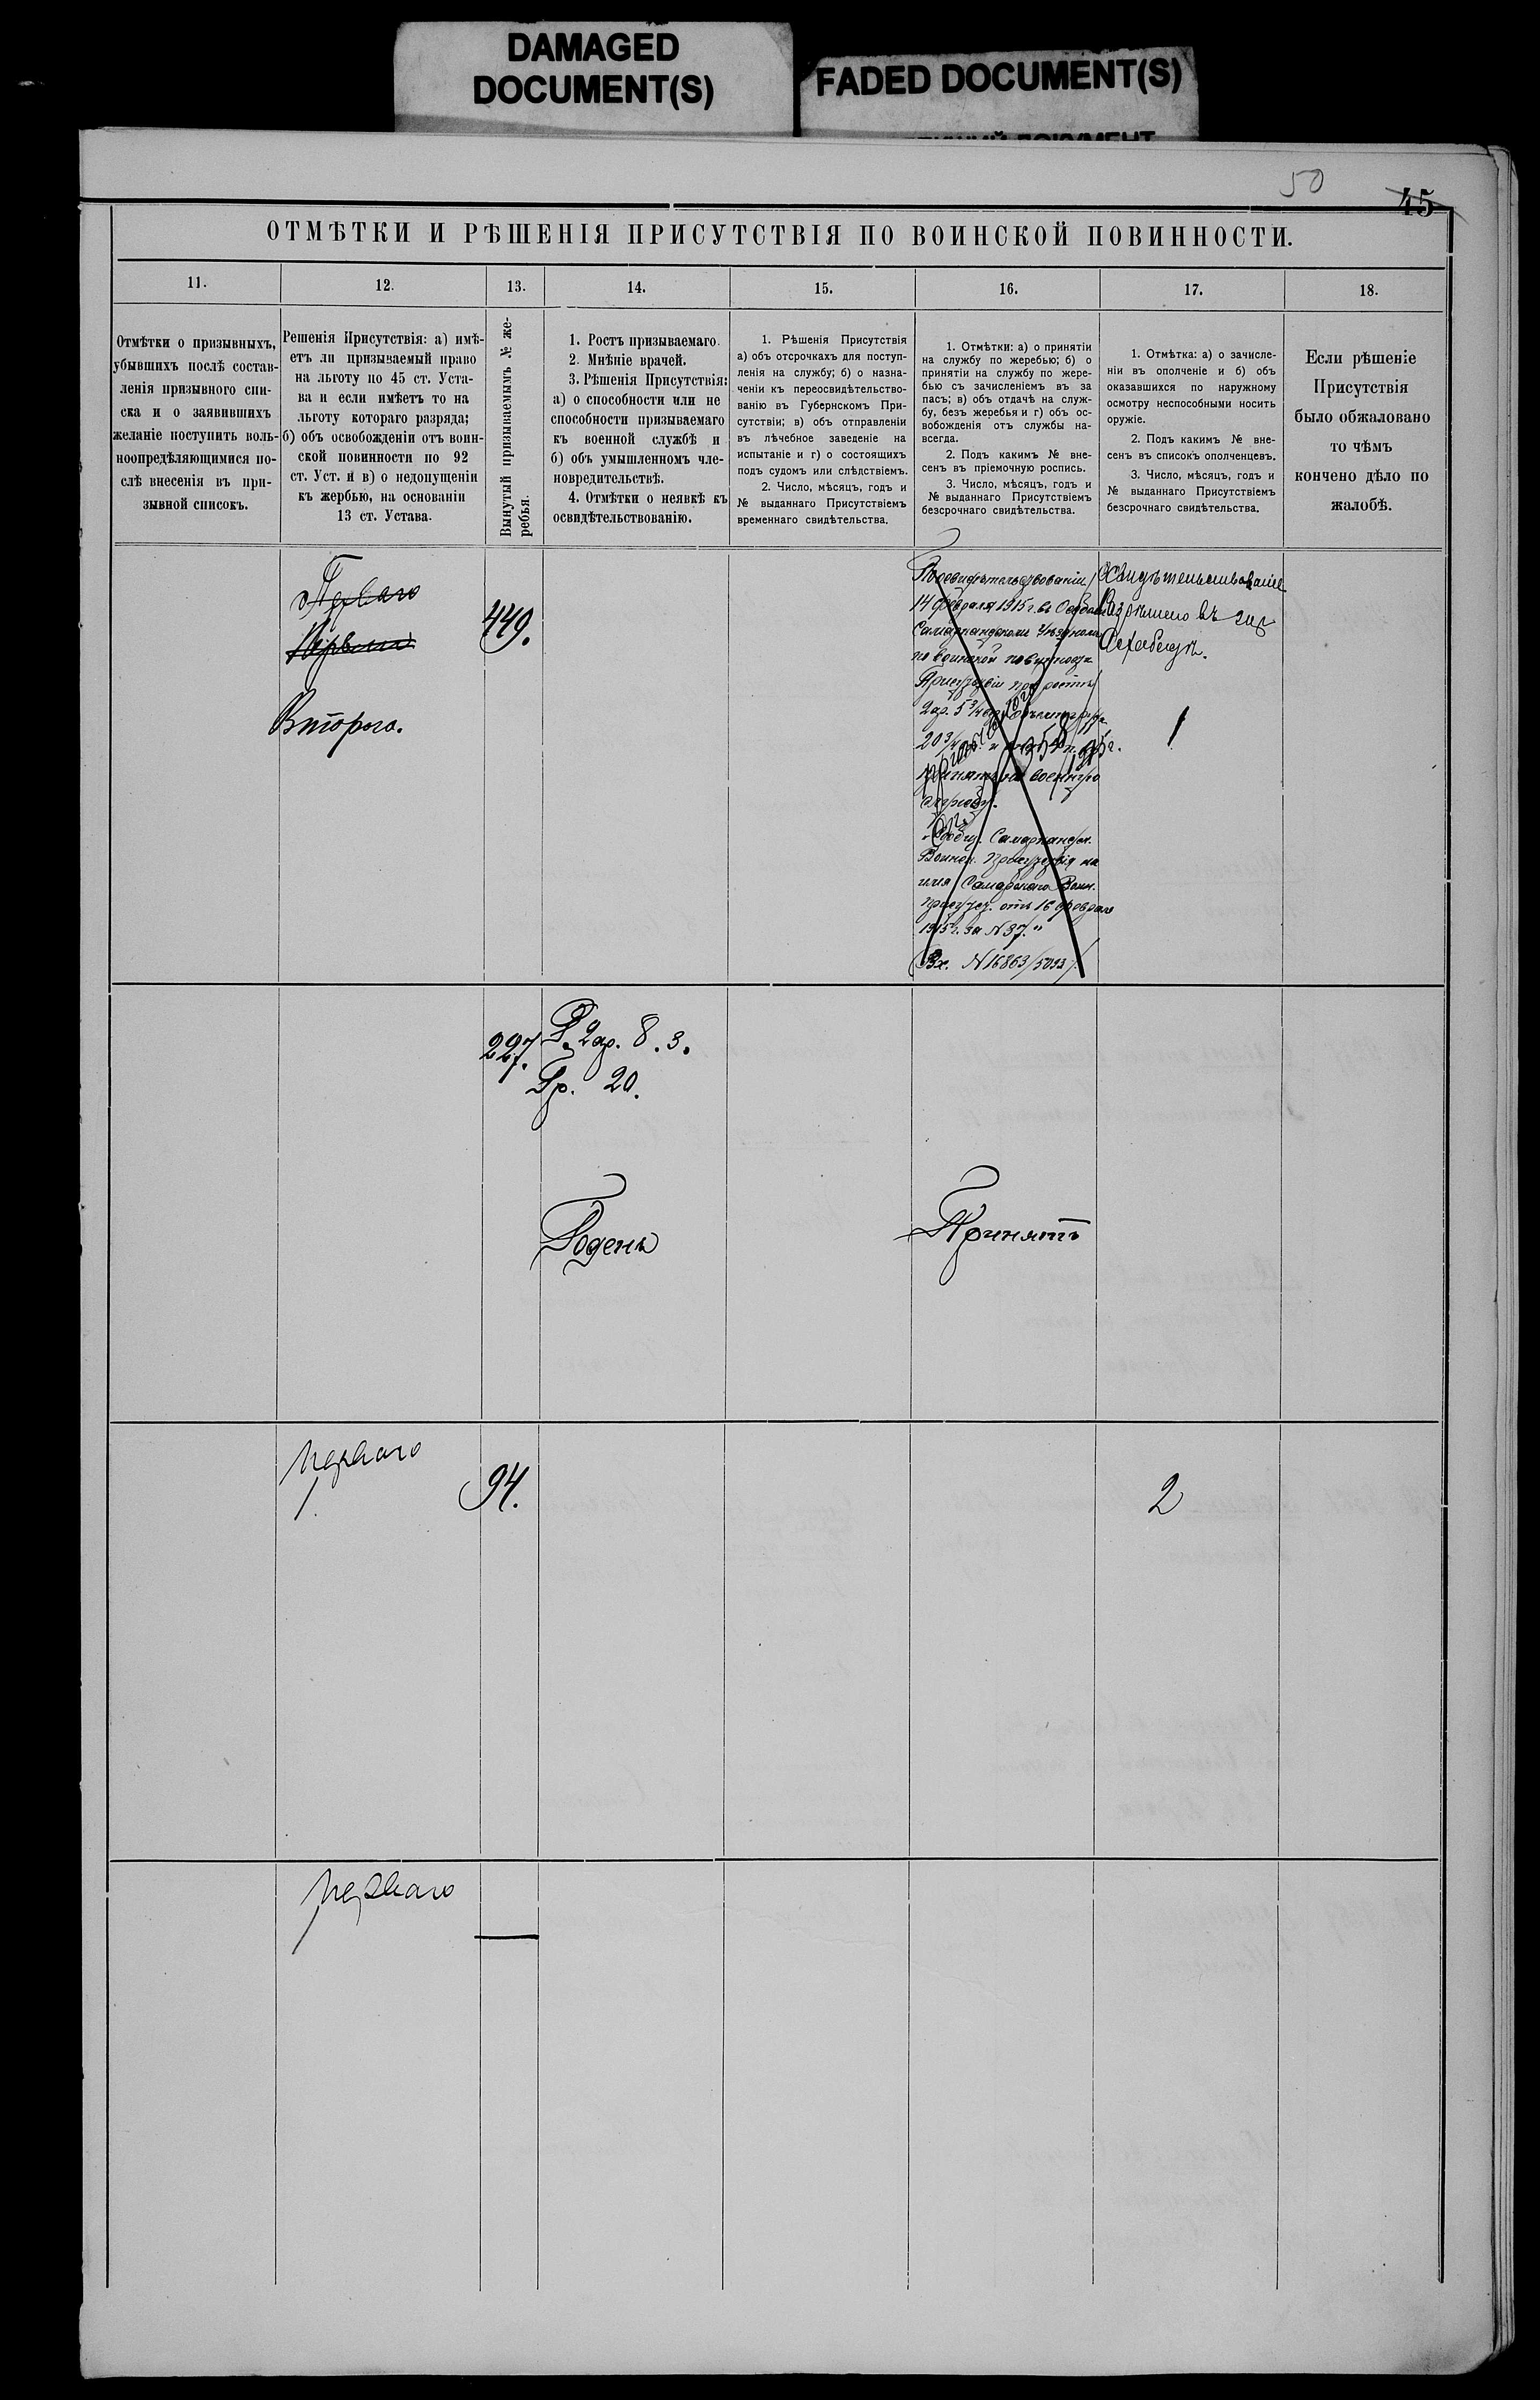 DAMAGED
DOCUMENT(S)
FADED DOCUMENT(S)
50
45
ОТМѢТКИ И РѢШЕНІЯ ПРИСУТСТВІЯ ПО ВОИНСКОЙ ПОВИННОСТИ.
11.
12.
13.
14.
15.
16.
17.
18.
Отмѣтки о призывныхъ,
убывшихъ послѣ состав-
ленія призывного спи-
ска и о заявившихъ
желаніе поступить воль-
ноопредѣляющимися по-
слѣ внесенія въ при-
зывной списокъ.
Решенія Присутствія: а) имѣ-
етъ ли призываемый право
на льготу по 45 ст. Уста-
ва и если имѣетъ то на
льготу котораго разряда;
б) объ освобожденіи отъ воин-
ской повинности по 92
ст. Уст. и в) о недопущеніи
къ жербью, на основаніи
13 ст. Устава.
Вынутый призываемымъ № же-
ребья.
1. Ростъ призываемаго.
2. Мнѣніе врачей.
3. Рѣшенія Присутствія:
а) о способности или не
способности призываемаго
къ военной службѣ и
б) объ умышленномъ чле-
новредительствѣ.
4. Отмѣтки о неявкѣ къ
освидѣтельствованію.
1. Рѣшенія Присутствія
а) объ отсрочкахъ для поступ-
ленія на службу; б) о назна-
ченіи къ переосвидѣтельство-
ванію въ Губернскомъ При-
сутствіи; в) объ отправленіи
въ лѣчебное заведеніе на
испытаніе и г) о состоящихъ
подъ судомъ или слѣдствіемъ.
2. Число, мѣсяцъ, годъ и
№ выданнаго Присутствіемъ
временнаго свидѣтельства.
1. Отмѣтки: а) о принятіи
на службу по жеребью; б) о
принятіи на службу по жере-
бью съ зачисленіемъ въ за
пасъ; в) объ отдачѣ на служ-
бу, безъ жеребья и г) объ ос-
вобожденія отъ службы на-
всегда.
2. Подъ какимъ № вне-
сенъ въ пріемочную роспись.
3. Число, мѣсяцъ, годъ и
№ выданнаго Присутствіемъ
безсрочнаго свидѣтельства.
1. Отмѣтка: а) о зачисле-
ніи въ ополченіе и б) объ
оказавшихся по наружному
осмотру неспособными носить
оружіе.
2. Подъ какимъ № вне-
сенъ въ списокъ ополченцевъ.
3. Число, мѣсяцъ, годъ и
№ выданнаго Присутствіемъ
безсрочнаго свидѣтельства.
Если рѣшеніе
Присутствія
было обжаловано
то чѣмъ
кончено дѣло по
жалобѣ.
Перваго
Второго.
449.
14 февраля 1915 г. въ
Самаркандскомъ Уѣздномъ
по воинской повинности
Присутствіи при ростѣ
2 ар. 5 3/4
20 3/4
военную
службу.
Сообщ. Самаркандск.
Воинск. Присутствія на
имя Самарскаго Воин.
Присутст. отъ 16 февраля
1915 г. за № 37."
Вх. № 16863/5093
Освидѣтельствованіе
разрѣшено въ гор
1
227.
Р. 2 ар. 8. 3.
Гр. 20.
Годенъ
Принятъ
перваго
94.
2
перваго